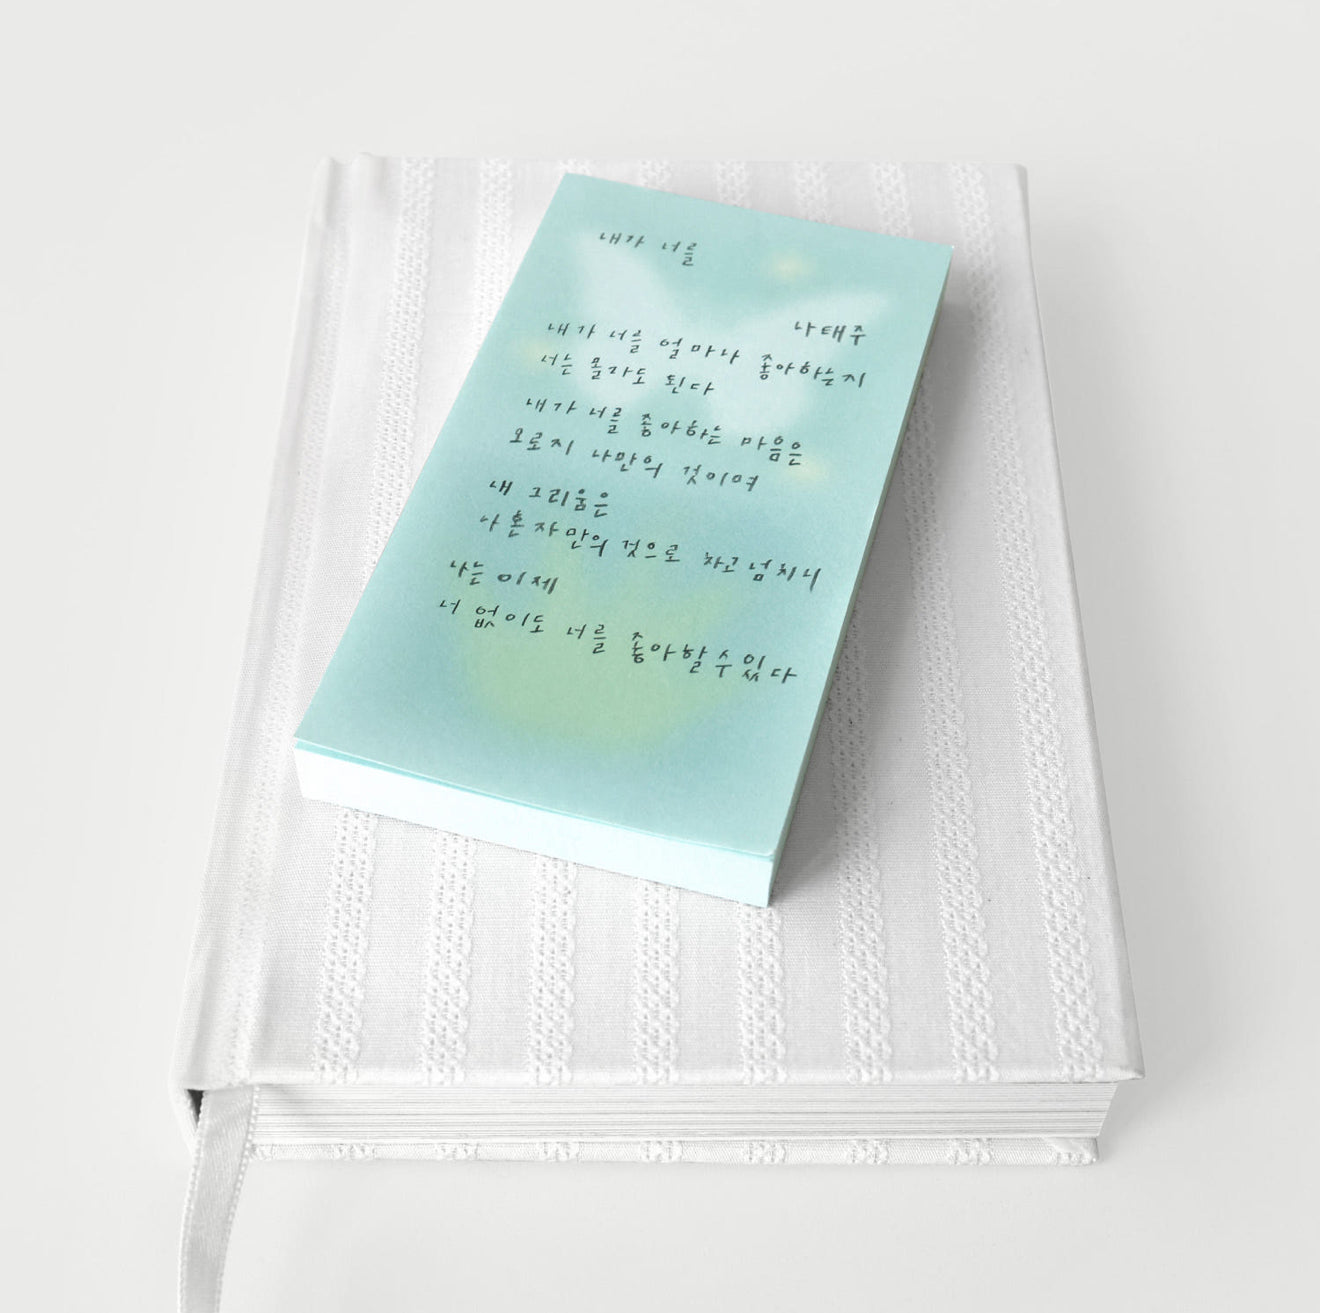 내가 너를
나태주
내가 너를 얼마나 좋아하는지
너는 몰라도 된다
내가 너를 좋아하는 마음은
오로지 나만의 것이며
내 그리움은
나 혼자만의 것으로 차고 넘치니
나는 이제
너 없이도 너를 좋아할 수 있다